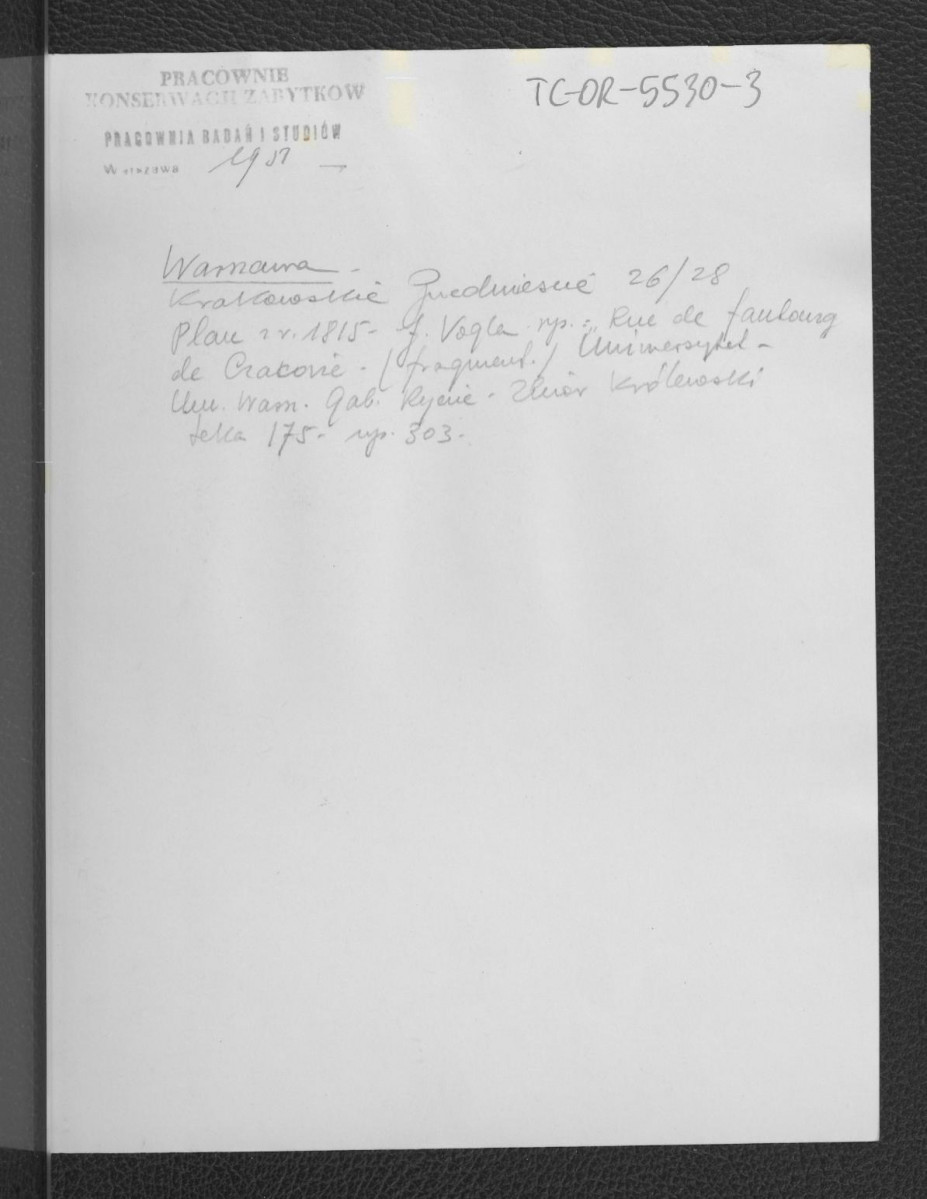 PRACOWNIE
KONSERWACJI ZABYTKÓW
PRACOWNIA BADAŃ I STUDIÓW
Warszawa
TC-OR-5530-3
Warszawa -
Krakowskie Przedmieście 26/28
Plan z r. 1815 - J. Vogla rys.: „Rue de faubourg
de Cracovie - (fragment.) Uniwersytet -
Uw. Warsz. Gab. Rycin - Zbiór Królewski
teka 175 - rys. 303 -